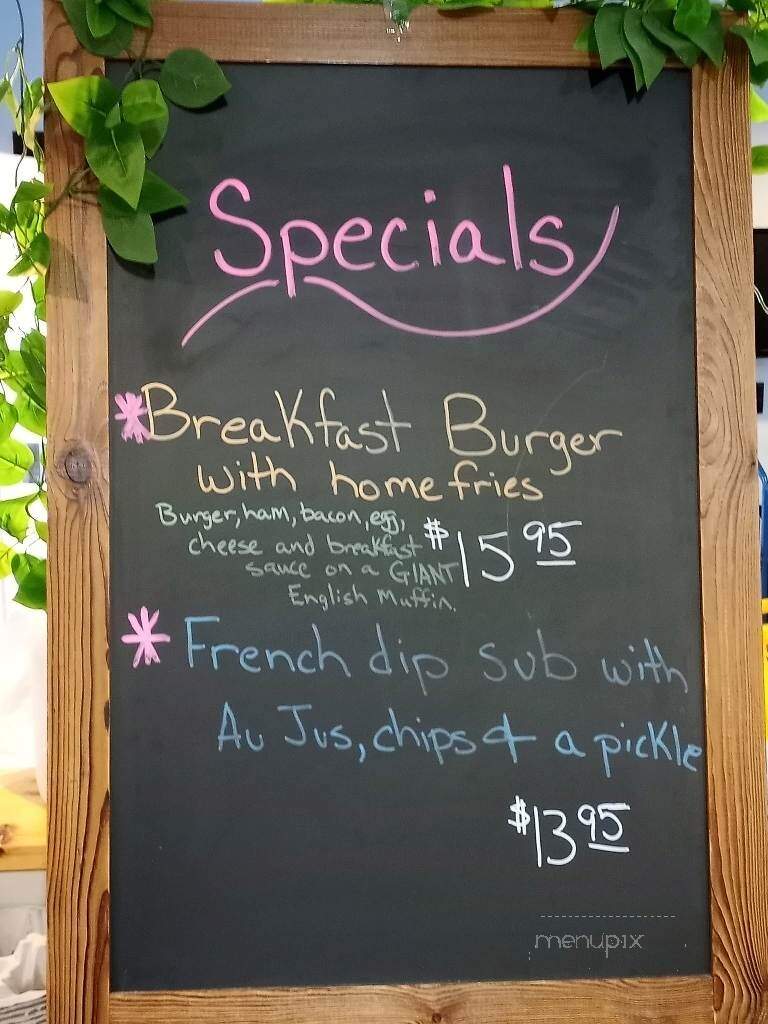 Specials
*Breakfast Burger
with home fries
Burger, ham, bacon, egg,
cheese and breakfast
sauce on a GIANT
English Muffin.
$15 95
* French dip sub with
Au Jus, chips & a pickle
$13 95
menupix